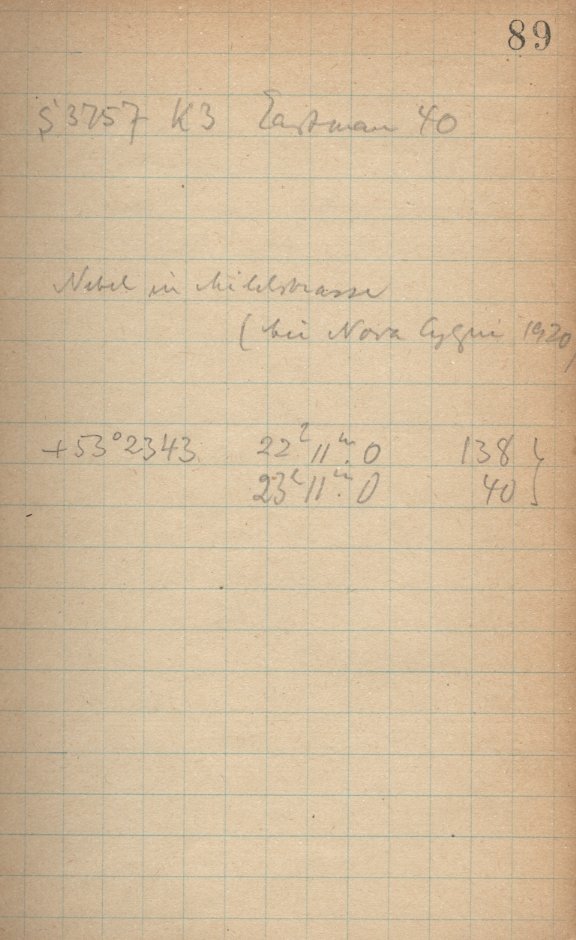 89
S 3757 K3 Eastman 40
Nebel in Milchstrasse
(bei Nova Cygni 1920)
+53°2343 22ʰ11ᵐ.0 138 }
23ʰ11ᵐ.0 40 }